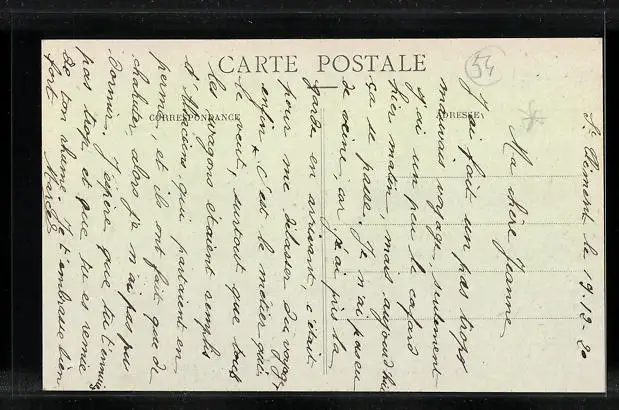 CARTE POSTALE
54
CORRESPONDANCE
ADRESSE
St Clément le 19.12-20
Ma chère Jeanne
J'ai fait un pas trop
mauvais voyage, seulement
j'ai un peu le cafard
hier matin, mais aujourd'hui
ça se passe. Je n'ai pas eu
de veine car j'ai pris la
garde en arrivant, c'était
pour me délasser du voyage
enfin c'est le métier qui
le veut, surtout que tous
les wagons étaient remplis
d'Alsaciens qui partaient en
permis et ils ont fait que de
chahuter alors je n'ai pas pu
dormir. J'espère que tu t'ennuies
pas trop et que tu es remise
de ton rhume. Je t'embrasse bien
fort Marcel